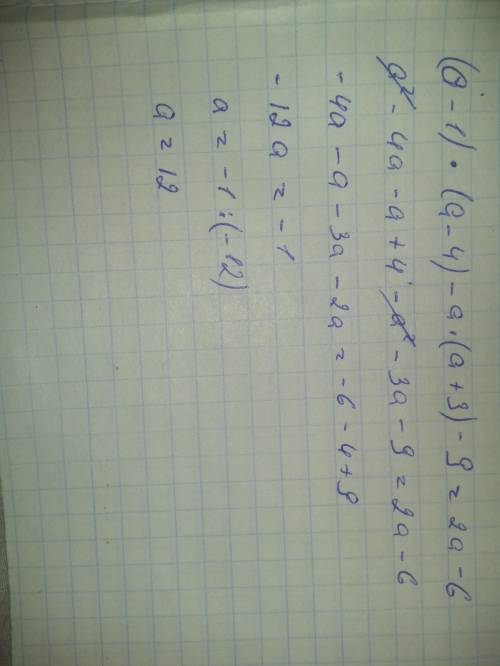 (a - 1) · (a - 4) - a · (a + 3) - 9 = 2a - 6
a² - 4a - a + 4 - a² - 3a - 9 = 2a - 6
- 4a - a - 3a - 2a = -6 - 4 + 9
- 12a = -1
a = -1 : (-12)
a = 12